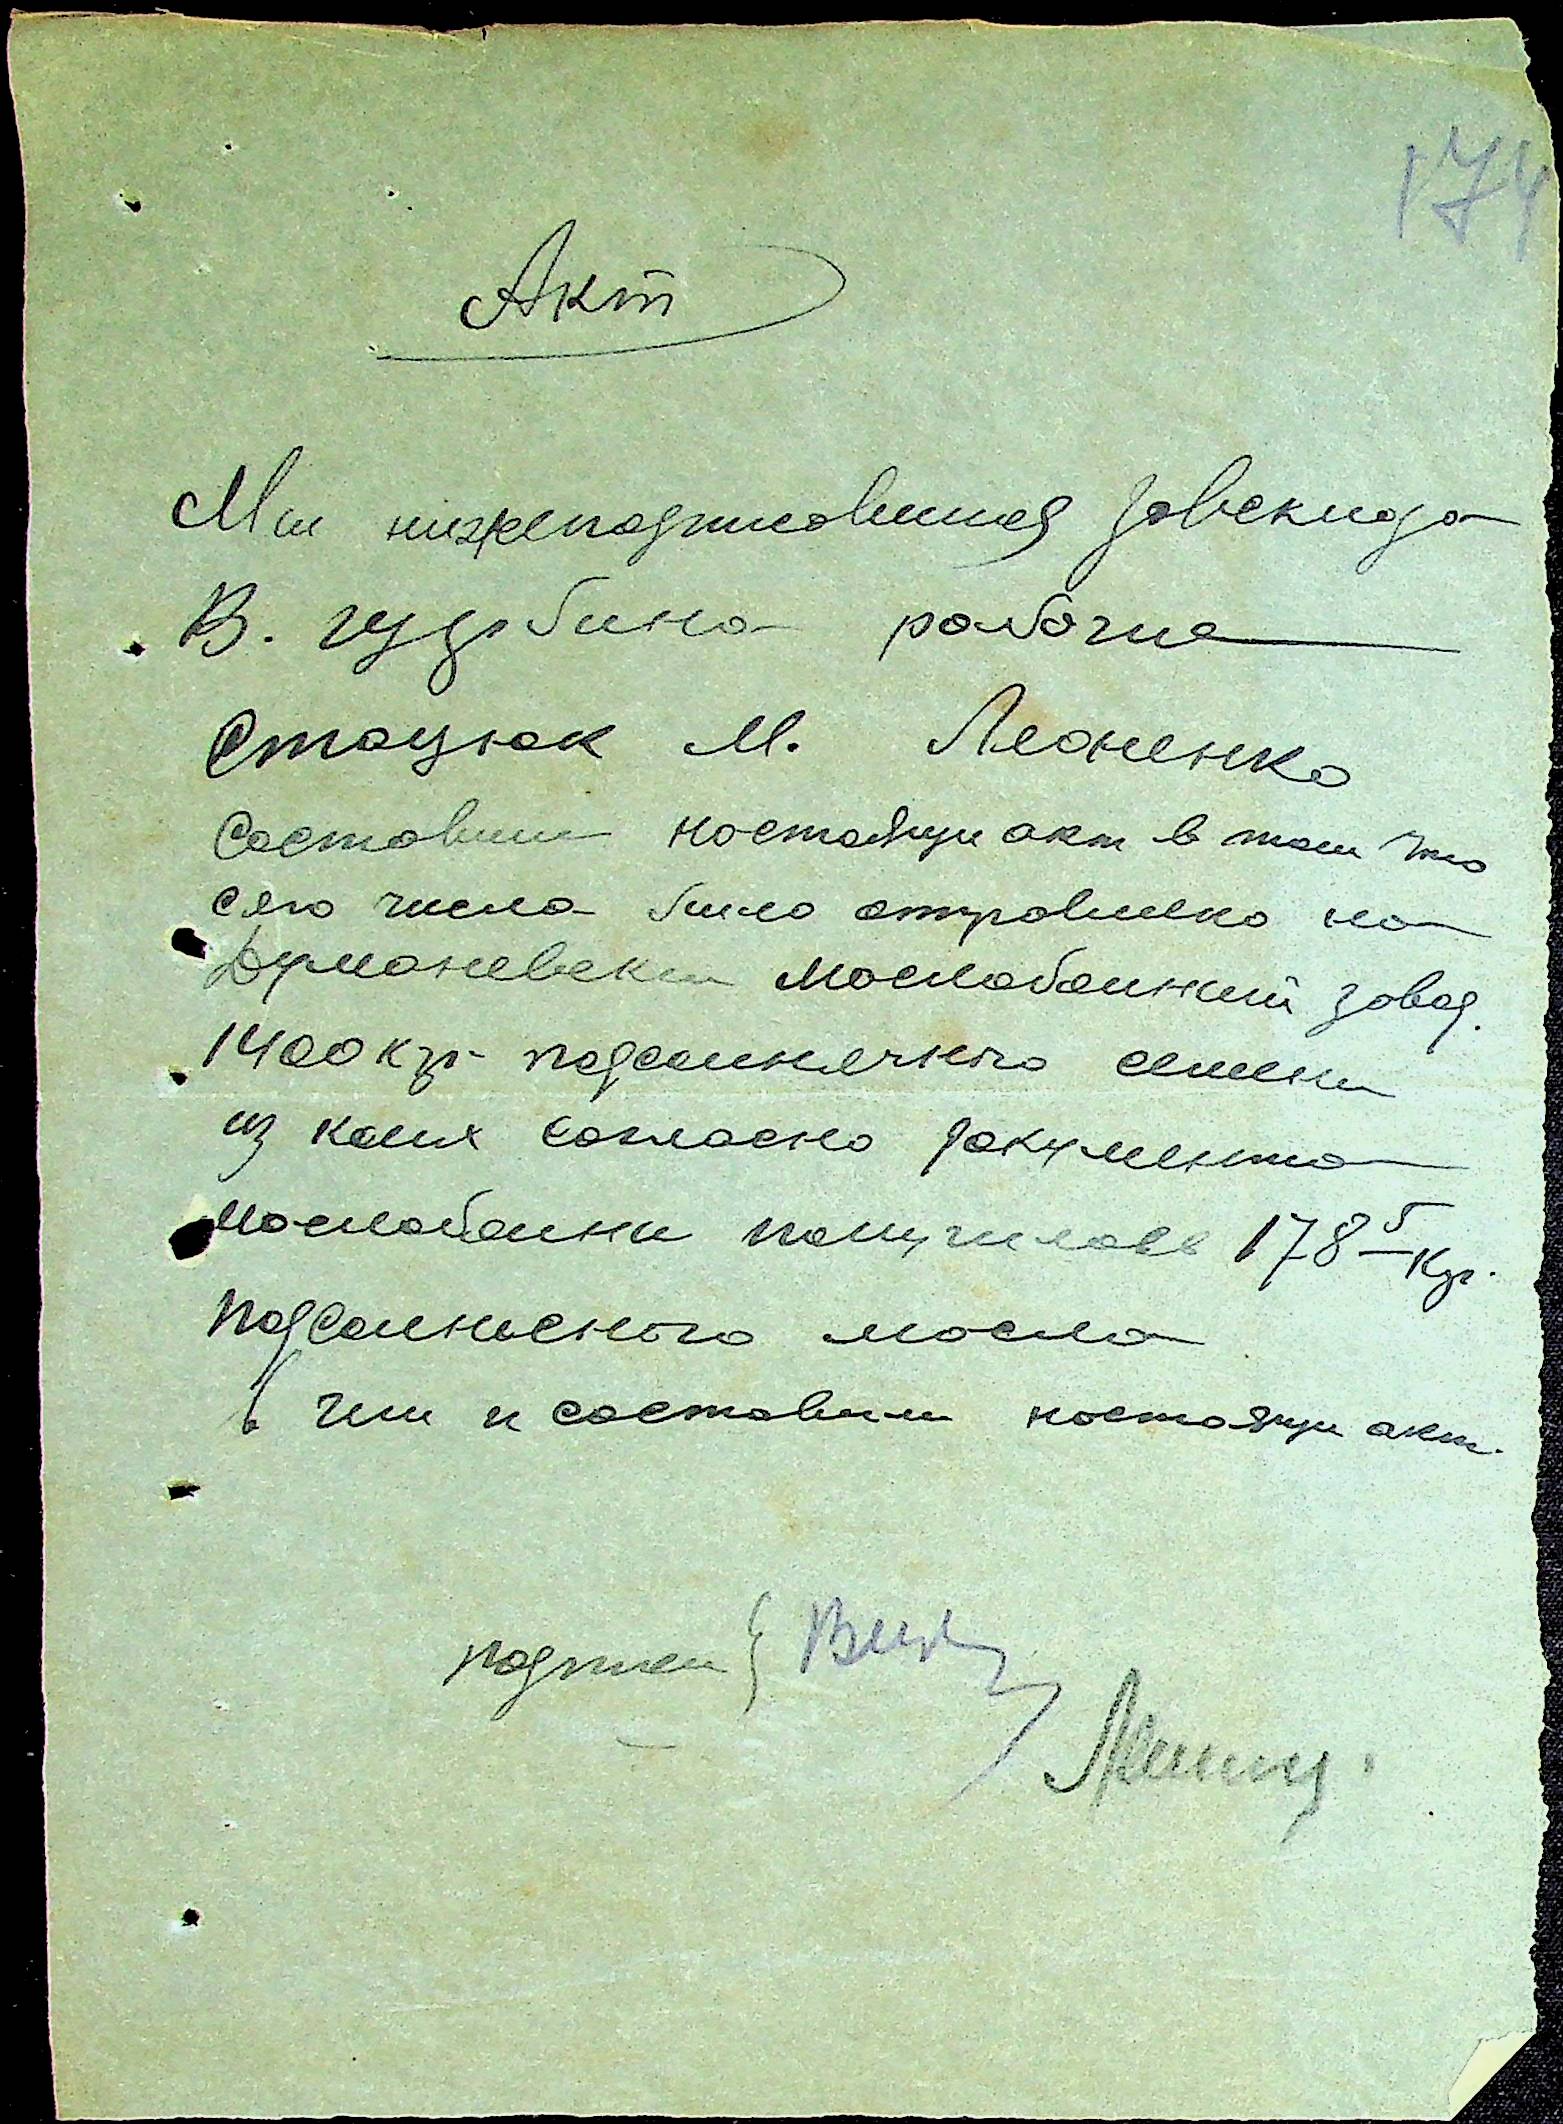 174
Акт
Мы нижеподписавшиеся завсклада
В. рабочие
Стацюк М. Леоненко
составили настоящи акт в том что
сего числа было отправлено на
Думаневски маслобойний завод.
1400 кгр подсолнячного семени
из коих согласно документа
маслобойни получилось 178 5 кгр.
подсолнечного масла
в чем и составили настоящи акт.
подписи